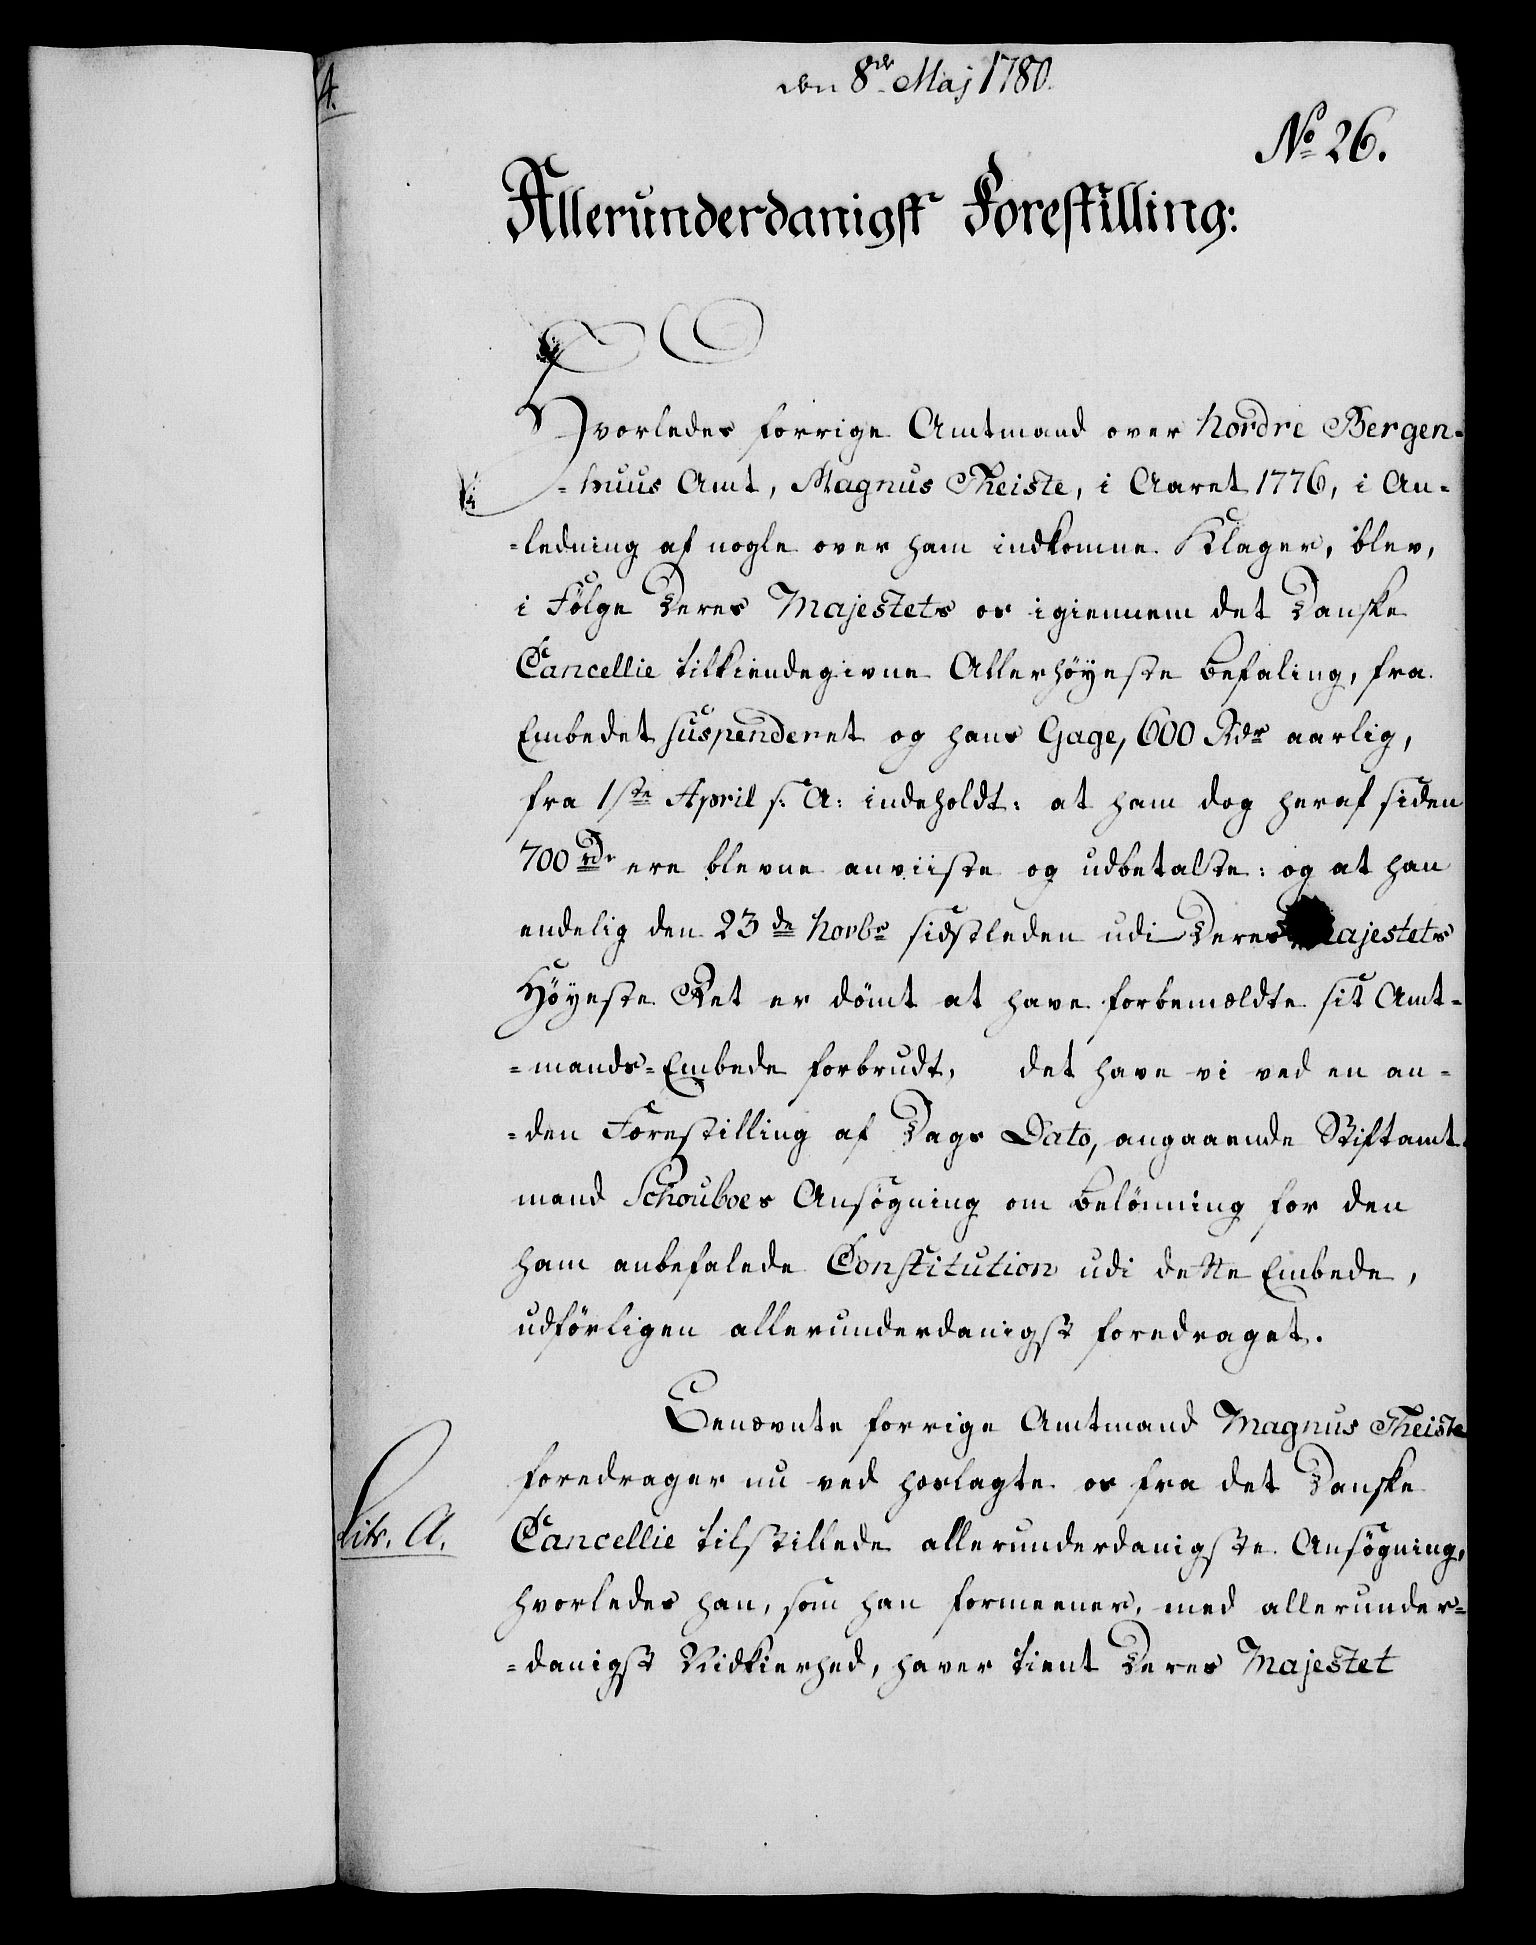 den 8de Maj 1780.
No 26.
Allerunderdanigst Forestilling:
Hvorledes forrige Amtmand over Nordre Bergen-
-huus Amt, Magnus Theiste, i Aaret 1776, i An-
-ledning af nogle over ham indkomne Klager, blev,
i Følge Deres Majestets os igiennem det Danske
Cancellie tilkiendegivne Allerhöyeste Befaling, fra
Embedet suspenderet og hans Gage, 600 Rdr aarlig,
fra 1ste April s: A: indeholdt: at ham dog heraf siden
700 rdr ere blevne anviiste og udbetalte: og at han
endelig den 23de Novbr sidstleden udi Deres Majestets
Höyeste Ret er dömt at have forbemeldte sit Amt-
-mands-Embede forbrudt, det have vi ved en an-
-den Forestilling af Dags Dato, angaaende Stiftamt-
mand Schouboes Ansögning om Belönning for den
ham anbefalede Constitution udi dette Embede,
udförligen allerunderdanigst foredraget.
Benævnte forrige Amtmand Magnus Theiste
foredrager nu ved hoslagte os fra det Danske
Litr. A.
Cancellie tilstillede allerunderdanigste Ansögning,
hvorledes han, som han formeener, med allerunder-
-danigst Nidkierhed, haver tient Deres Majestet